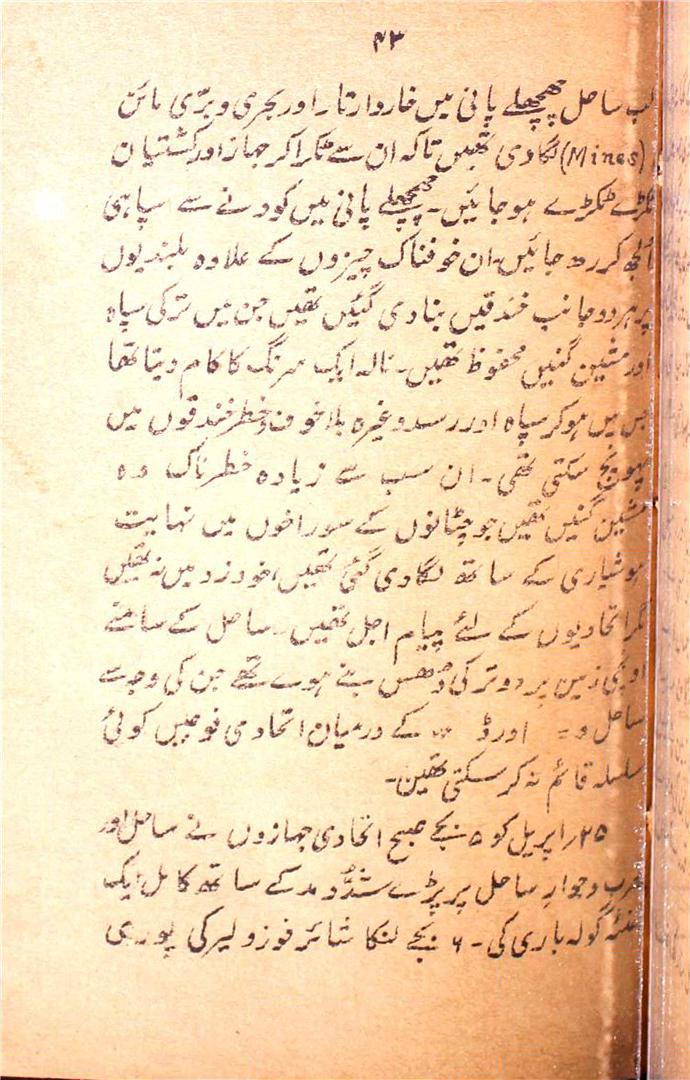 ۴۳
لب ساحل چھچھلے پانی میں خاردار تار اور بحری و برّی مائن
(Mines) لگا دی تھیں تاکہ ان سے ٹکرا کر جہاز اور کشتیان
ٹکڑے ٹکڑے ہو جائیں۔ چھچھلے پانی میں کودنے سے سپاہی
الجھ کر رہ جائیں۔ ان خوفناک چیزوں کے علاوہ بلندیوں
پر ہر دو جانب خندقیں بنا دی گئیں تھیں جن میں ترکی سپاہ
اور مشین گنیں محفوظ تھیں۔ نالہ ایک سرنگ کا کام دیتا تھا
جس میں ہو کر سپاہ اور رسد وغیرہ بلا خوف و خطر خندقوں میں
پہونچ سکتی تھی۔ ان سب سے زیادہ خطرناک وہ
مشین گنیں تھیں جو چٹانوں کے سوراخوں میں نہایت
ہوشیاری کے ساتھ لگا دی گئی تھیں، خود زد میں نہ تھیں
مگر اتحادیوں کے لئے پیام اجل تھیں۔ ساحل کے سامنے
اونچی زمین پر دو ترکی دمدمے بنے ہوے تھے جن کی وجہ سے
ساحل و = اور ڈ " کے درمیان اتحادی فوجیں کوئی
سلسلہ قائم نہ کر سکتی تھین۔
۲۵؍ اپریل کو ۵ بجے صبح اتحادی جہازوں نے ساحل اور
قرب و جوار ساحل پر بڑے شدّ و مد کے ساتھ کامل ایک
گھنٹہ گولہ باری کی۔ ۶ بجے لنکا شائر فوزولیر کی پوری